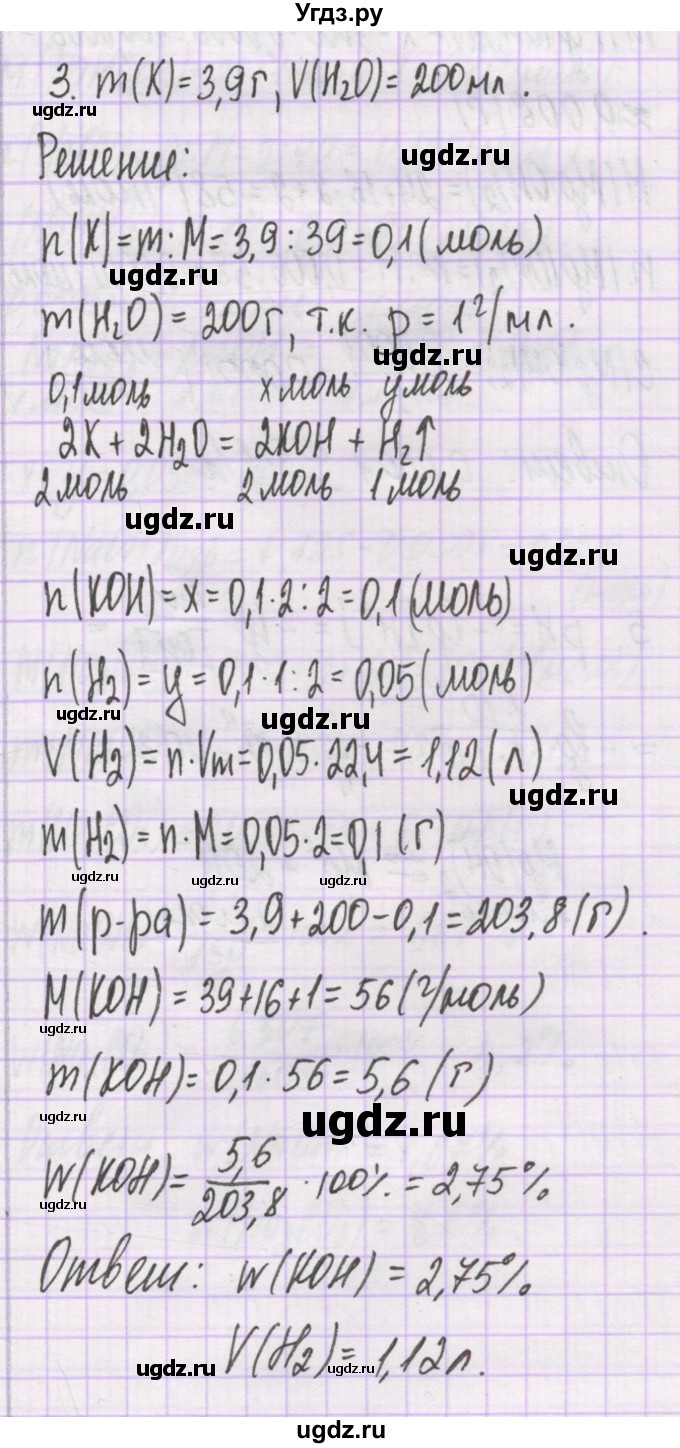 Угдз.ру
3. m(K)=3,9г, V(H₂O)=200мл.
ugdz.ru
Решение:
ugdz.ru
n(K)=m:M=3,9:39=0,1(моль)
ugdz.ru
m(H₂O)=200г, т.к. р=1г/мл.
ugdz.ru
0,1моль x моль y моль
2K+2H₂O=2KOH+H₂↑
2 моль 2 моль 1 моль
ugdz.ru
ugdz.ru
n(KOH)=x=0,1·2:2=0,1(моль)
n(H₂)=y=0,1·1:2=0,05(моль)
ugdz.ru ugdz.ru
V(H₂)=n·Vm=0,05·22,4=1,12(л)
ugdz.ru
m(H₂)=n·M=0,05·2=0,1(г)
ugdz.ru ugdz.ru ugdz.ru
m(р-ра)=3,9+200-0,1=203,8(г).
M(KOH)=39+16+1=56(г/моль)
ugdz.ru
m(KOH)=0,1·56=5,6(г)
ugdz.ru ugdz.ru
w(KOH)=5,6/203,8·100%=2,75%
ugdz.ru
Ответ: w(KOH)=2,75%
V(H₂)=1,12л.
ugdz.ru ugdz.ru
ugdz.ru